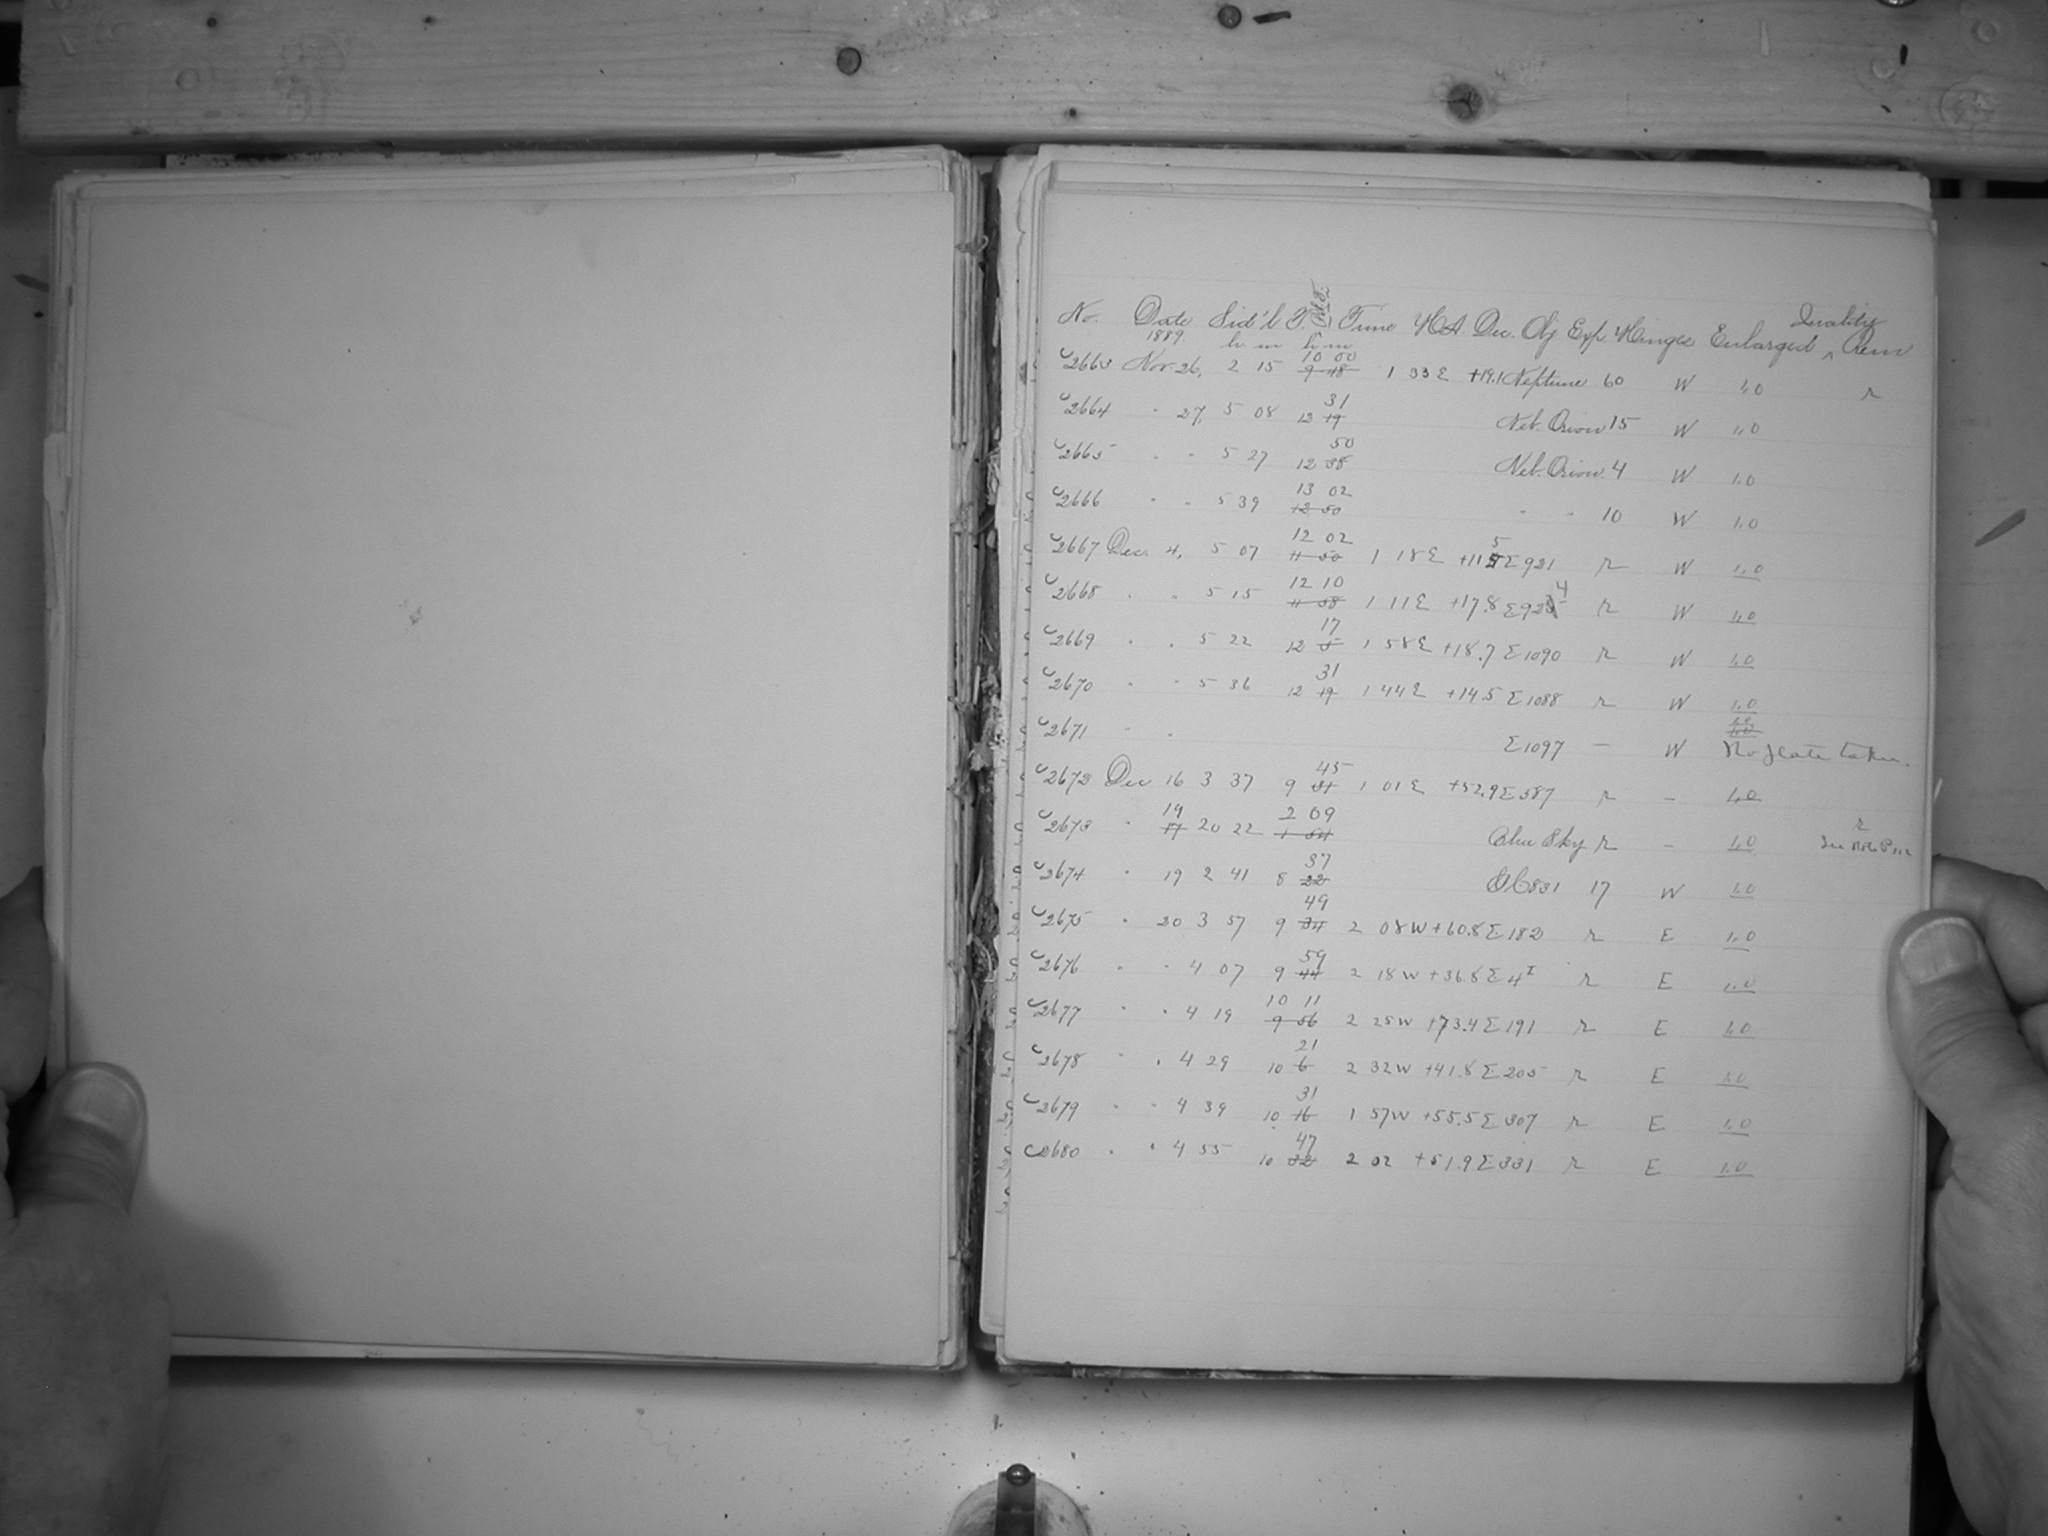 No. Date Sid'l T. Time H.A. Dec. Obj Exp. Hinges Enlarged ^ Quality Rem
1889. h m h m
10 00
C2663 Nov. 26, 2 15 9 48 1 33 E +19.1 Neptune 60 W 1.0 r
31
C2664 " 27, 5 08 12 19 Neb. Orion 15 W 1.0
50
C2665 " " 5 27 12 38 Neb. Orion 4 W 1.0
13 02
C2666 " " 5 39 12 50 " " 10 W 1.0
12 02 5
C2667 Dec. 4, 5 07 11 50 1 18 E +11. Σ921 r W 1.0
12 10 4
C2668 " " 5 15 11 58 1 11 E +17.8 Σ925 r W 1.0
17
C2669 " " 5 22 12 5 1 58 E +18.7 Σ1090 r W 1.0
31
C2670 " " 5 36 12 19 1 44 E +14.5 Σ1088 r W 1.0
C2671 " " Σ1097 — W 1.0 No plate taken.
45
C2672 Dec 16 3 37 9 31 1 01 E +52.9 Σ387 r – 1.0
19 2 09 r
C2673 " 17 20 22 1 54 Blue Sky r – 1.0 See note P.
37
C2674 " 19 2 41 8 22 831 17 W 1.0
49
C2675 " 20 3 57 9 34 2 08 W +60.8 Σ182 r E 1.0
59
C2676 " " 4 07 9 44 2 18 W +36.8 Σ4 I r E 1.0
10 11
C2677 " " 4 19 9 56 2 25 W +73.4 Σ191 r E 1.0
21
C2678 " " 4 29 10 6 2 32 W +41.8 Σ205 r E 1.0
31
C2679 " " 4 39 10 16 1 57 W +55.5 Σ307 r E 1.0
47
C2680 " " 4 55 10 32 2 02 +51.9 Σ331 r E 1.0